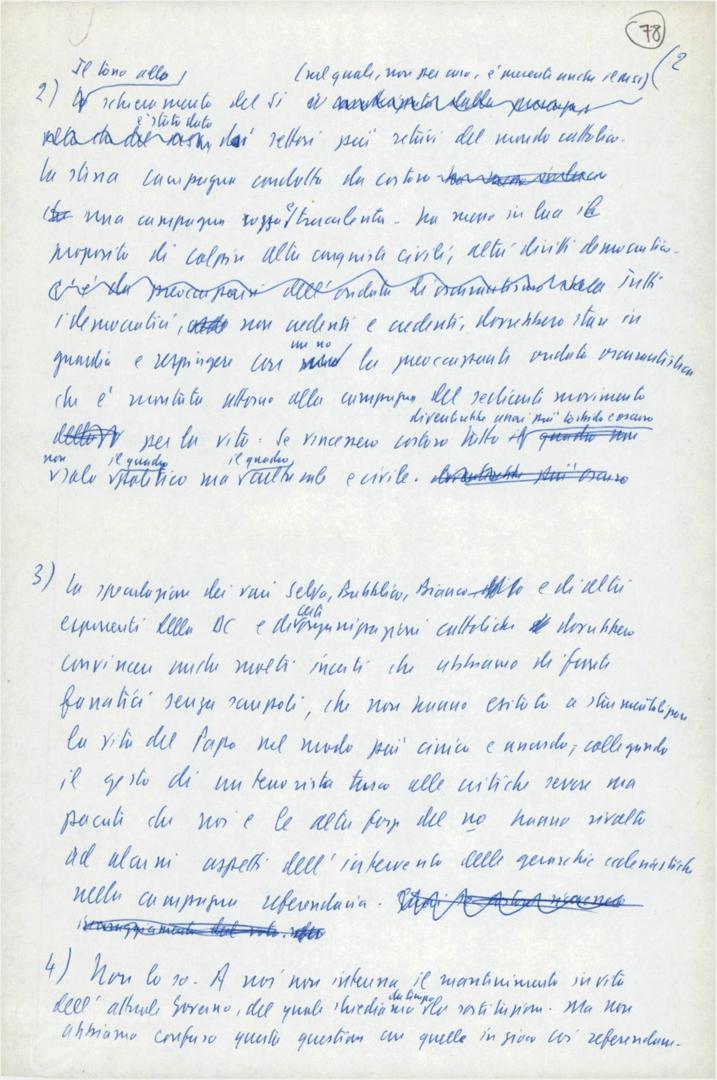 78
(2
Il tono allo (nel quale, non per caso, è presente anche il msi)
2) schieramento del Sì è
è stato dato
dai settori più retrivi del mondo cattolico.
La stessa campagna condotta da costoro
una campagna rozza e truculenta - ha messo in luce il
proposito di colpire altre conquiste civili, altri diritti democratici.
C'è da preoccuparsi dell'ondata di oscurantismo Tutti
i democratici, non credenti e credenti, dovrebbero stare in
un no
guardia e respingere con la preoccupante ondata oscurantistica
che è montata attorno alla campagna del sedicente movimento
diventerebbe ancor più torbido e oscuro
per la vita. Se vincessero costoro tutto il quadro non
non il quadro il quadro
solo politico ma culturale e civile. diventerebbe più oscuro
3) La speculazione dei vari Selva, Bubbico, Bianco e di altri
certi
esponenti della DC e di organizzazioni cattoliche dovrebbero
convincere anche molti incerti che abbiamo di fronte
fanatici senza scrupoli, che non hanno esitato a strumentalizzare
la vita del Papa nel modo più cinico e assurdo, collegando
il gesto di un terrorista turco alle critiche severe ma
pacate che noi e le altre forze del no hanno rivolto
ad alcuni aspetti dell'intervento delle gerarchie ecclesiastiche
nella campagna referendaria.
4) Non lo so. A noi non interessa il mantenimento in vita
da tempo
dell'attuale Governo, del quale chiediamo la sostituzione. Ma non
abbiamo confuso questa questione con quelle in gioco coi referendum.